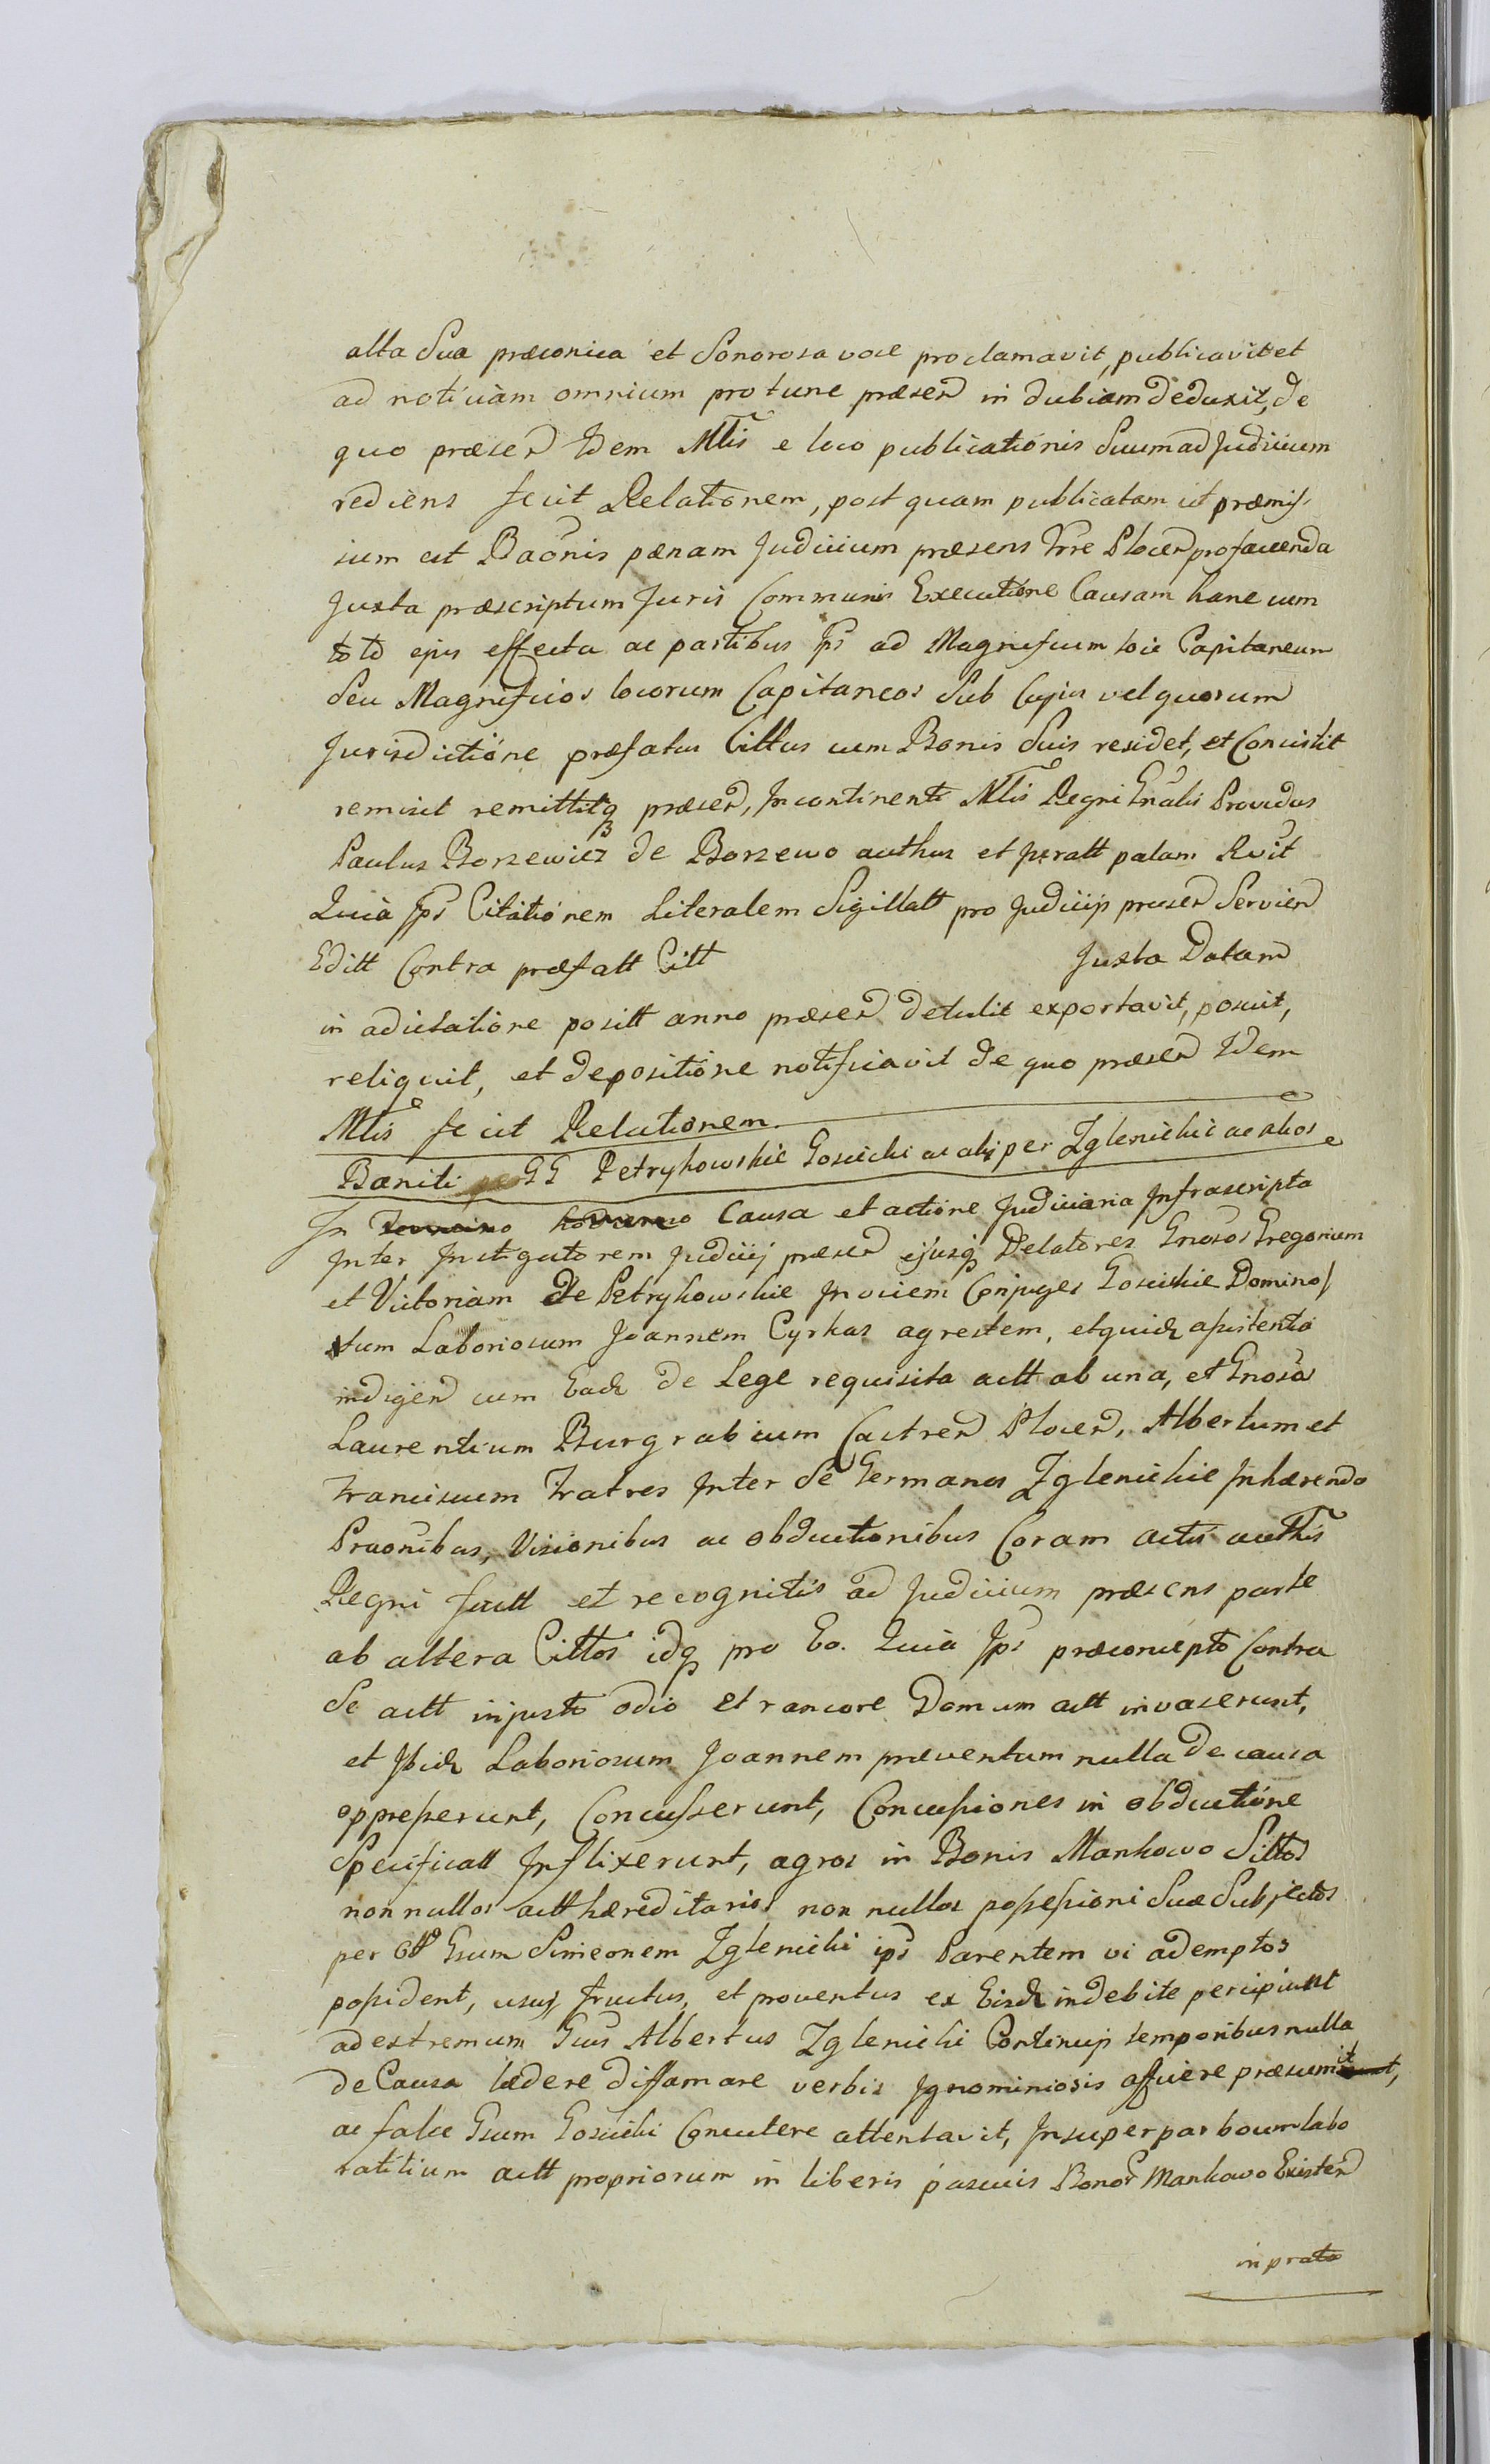 alta sua præconica et Sonorosa voce proclamavit, publicavit et
ad noticiam omnium pro tunc præsen in dubiam deduxit, de
quo præsen Idem Mtlis e loco publicationis suum ad Judicium
rediens fecit Relationem, post quam publicatam ut præmis-
sum est Baonis pænam Judicium præsens Trre Plocen pro facienda
Juxta præscriptum Juris Communis Executione Causam hanc cum
toto ejus effectu ac partibus Ips ad Magnificum loci Capitaneum
seu Magnificos locorum Capitaneos Sub Cujus vel quorum
Jurisdictione præfatus Cittus cum Bonis Suis residet, et Consistit
remisit remittitq præsen, Incontinenti Mtlis Regni Gnalis Providus
Paulus Borzewicz de Borzewo authus et juratt palam Rvit
Quia Ips Citationem Literalem Sigillatt pro Judicijs præsen Servien
Editt Contra præfatt Citt Juxta Datam
in adcitatione positt anno præsen detulit exportavit, posuit,
reliquit, et depositione notificavit de quo præsen Idem
Mtlis fecit Relationem.
Baniti GG Petrykowskie Gosicki ac alij per Zglenickie ac alios
In Termino hodierno Causa et actione Judiciaria Infrascripta
Inter Instigatorem Judicij præsen ejusq Delatores Gnosos Gregorium
et Victoriam de Petrykowskie Invicem Conjuges Gosickie Dominos
tum Laboriosum Joannem Cyrkas agrestem, et quid assistentia
indigen cum Ead de Lege requisita actt ab una, et Gnosos
Laurentium Burgrabium Castren Plocen, Albertum et
Franciscum Fratres Inter se Germanos Zglenickie Inhærendo
Praonibus, Visionibus ac obductionibus Coram actis authis
Regni factt et recognitis ad Judicium præsens parte
ab altera Cittos idq pro Eo. Quia Ips præconcepto Contra
se actt injusto odio et rancore Domum actt invaserunt,
et Ibid Laboriosum Joannem præventum nulla de causa
oppresserunt, Concusserunt, Concussiones in obductione
Specificatt Inflixerunt, agros in Bonis Mankowo Sittos
non nullos actt hæreditarios non nullos possessioni suæ Subjectos
per Gsum Simeonem Zglenicki ips Parentem vi ademptos
possident, usus, fructus, et proventus ex Eisd indebite percipiunt
ad extremum Gsus Albertus Zglenicki Continuis temporibus nulla
de Causa lædere diffamare verbis Ignominiosis afficere præsumit,
ac false Gsum Gosicki Concutere attentavit, Insuper par boum labo
ratitium actt propriorum in liberis pascuis Bonor Mankowo Existen
in prato